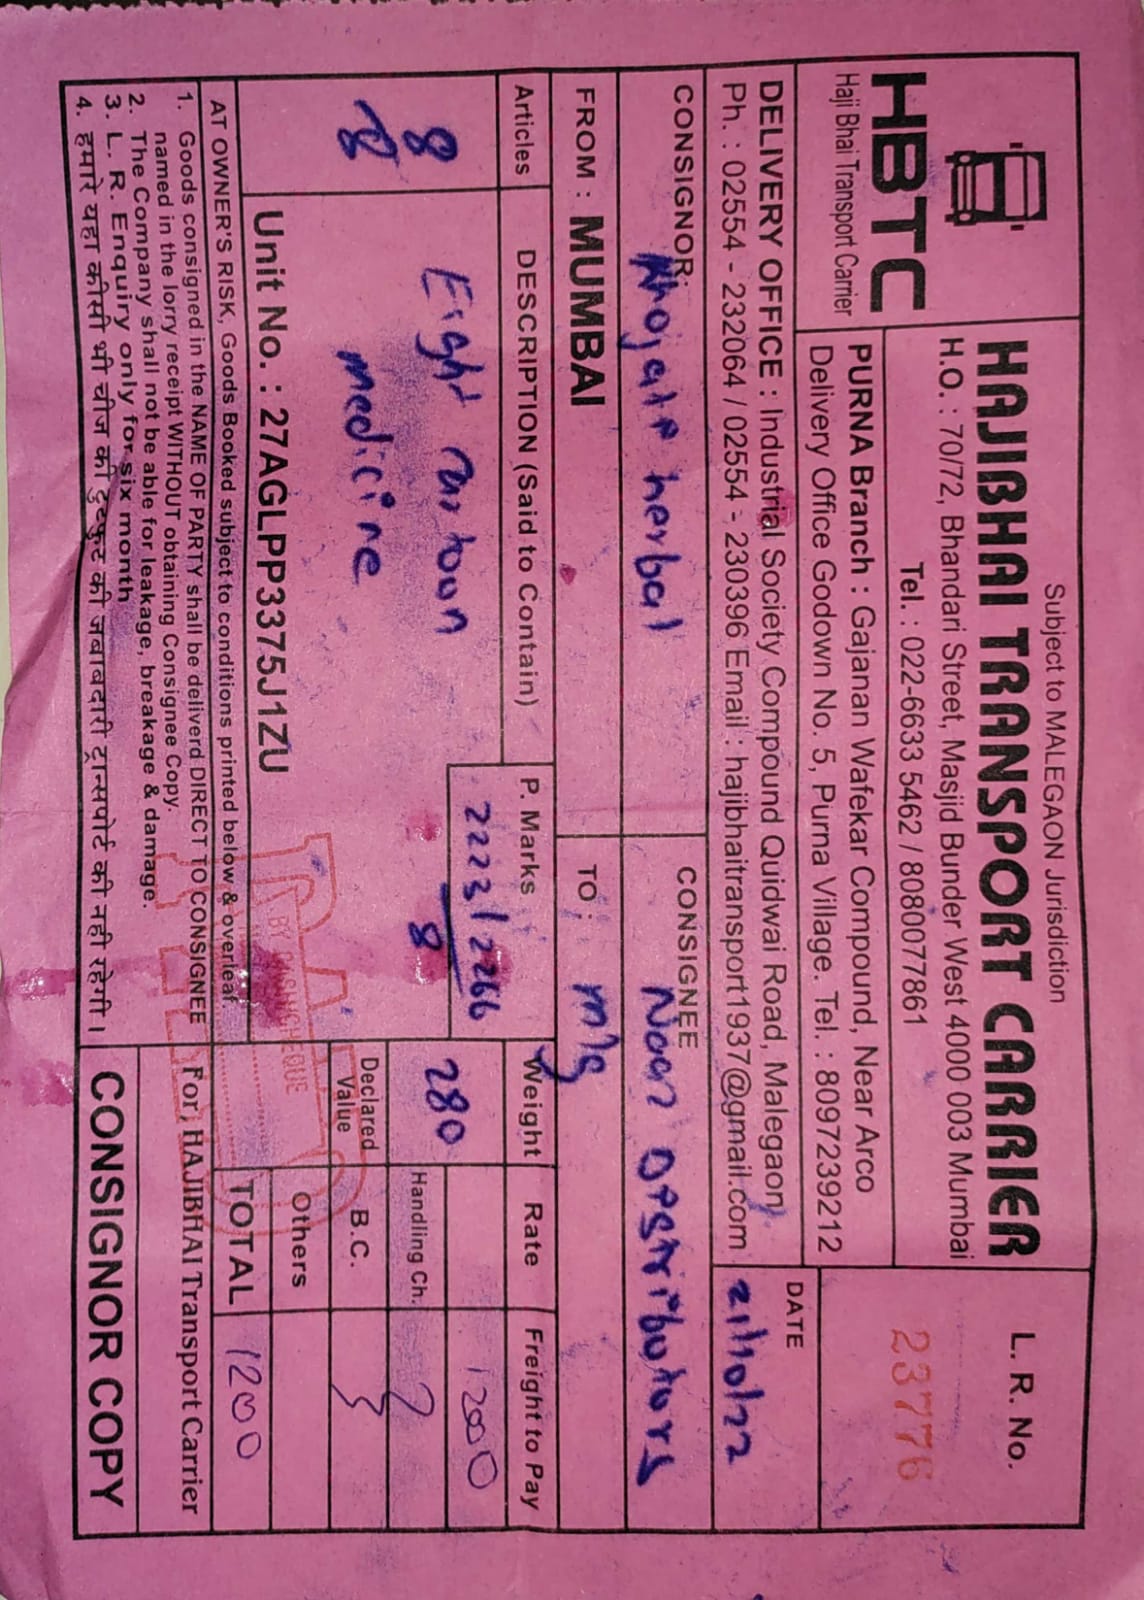 Subject to MALEGAON Jurisdiction
HBTC
Haji Bhai Transport Carrier
HAJIBHAI TRANSPORT CARRIER
H.O. : 70/72, Bhandari Street, Masjid Bunder West 4000 003 Mumbai
Tel. : 022-6633 5462 / 8080077861
L. R. No.
23776
PURNA Branch : Gajanan Wafekar Compound, Near Arco
Delivery Office Godown No. 5, Purna Village. Tel. : 8097239212
DELIVERY OFFICE : Industrial Society Compound Quidwai Road, Malegaon)
Ph. : 02554 - 232064 / 02554 - 230396 Email : hajibhaitransport1937@gmail.com
DATE
21/10/22
CONSIGNOR:
herbal
CONSIGNEE
Noor
FROM : MUMBAI
TO : m/g
Articles
DESCRIPTION (Said to Contain)
P. Marks
Weight
Rate
Freight to Pay
8
8
Eight
medicine
2223/2266
8
280
1200
Handling Ch.
Declared
Value
B.C.
Others
TOTAL
1200
Unit No. : 27AGLPP3375J1ZU
PAID
BY CASH/CHEQUE
AT OWNER'S RISK, Goods Booked subject to conditions printed below & overleaf.
1. Goods consigned in the NAME OF PARTY shall be deliverd DIRECT TO CONSIGNEE
named in the lorry receipt WITHOUT obtaining Consignee Copy.
2. The Company shall not be able for leakage, breakage & damage.
3. L. R. Enquiry only for six month
4. हमारे यहा कीसी भी चीज की टुटफुट की जवाबदारी ट्रान्सपोर्ट की नही रहेगी।
For, HAJIBHAI Transport Carrier
CONSIGNOR COPY